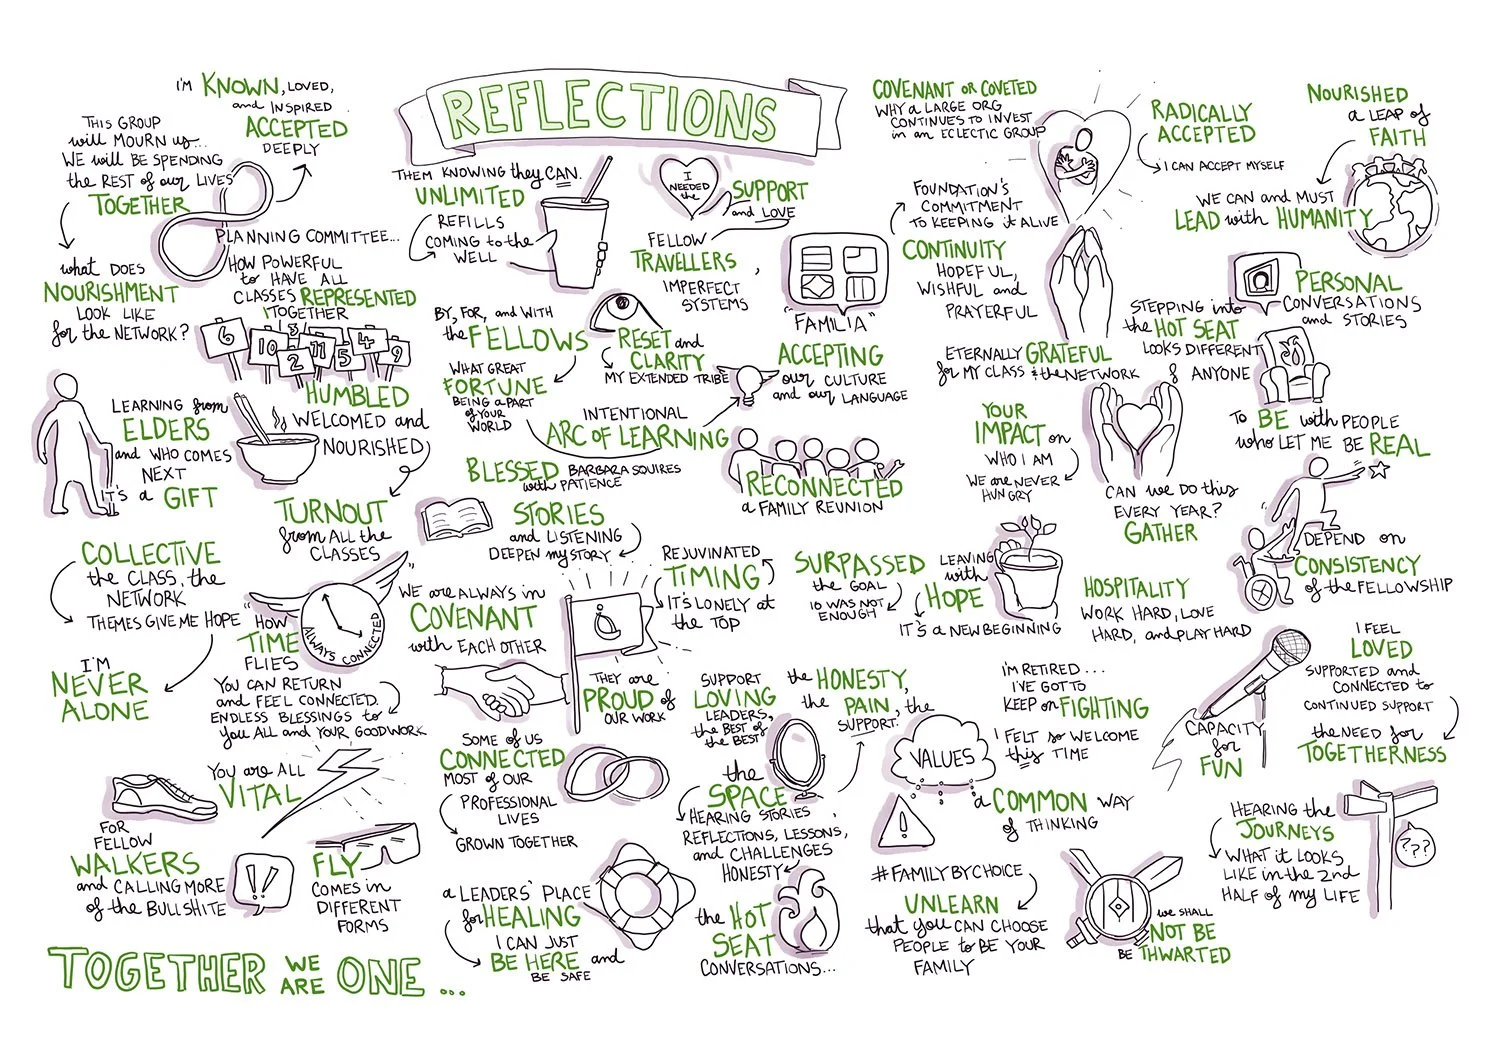 REFLECTIONS
I'M KNOWN, LOVED,
and INSPIRED
ACCEPTED
DEEPLY
THIS GROUP
will MOURN us...
WE will BE SPENDING
the REST of our LIVES
TOGETHER
PLANNING COMMITTEE...
HOW POWERFUL
to HAVE ALL
CLASSES REPRESENTED
TOGETHER
what DOES
NOURISHMENT
LOOK LIKE
for the NETWORK?
6
10
3
2
11
5
4
9
HUMBLED
WELCOMED and
NOURISHED
LEARNING from
ELDERS
and WHO COMES
NEXT
IT'S a GIFT
TURNOUT
from ALL the
CLASSES
COLLECTIVE
the CLASS, the
NETWORK
THEMES GIVE ME HOPE
I'M
NEVER
ALONE
"HOW
TIME
FLIES
ALWAYS CONNECTED
"
YOU CAN RETURN
and FEEL CONNECTED.
ENDLESS BLESSINGS to
you ALL and YOUR GOODWORK
YOU are ALL
VITAL
FOR
FELLOW
WALKERS
and CALLING MORE
of the BULLSHITE
!!
FLY
COMES in
DIFFERENT
FORMS
TOGETHER WE ARE ONE ...
THEM KNOWING they CAN.
UNLIMITED
REFILLS
COMING to the
WELL
I
NEEDED
the
SUPPORT
and LOVE
FELLOW
TRAVELLERS,
IMPERFECT
SYSTEMS
"FAMILIA"
BY, FOR, and WITH
the FELLOWS
WHAT GREAT
FORTUNE
BEING a PART
of YOUR
WORLD
RESET and
CLARITY
MY EXTENDED TRIBE
ACCEPTING
our CULTURE
and our LANGUAGE
INTENTIONAL
ARC OF LEARNING
BLESSED BARBARA SQUIRES
with PATIENCE
RECONNECTED
a FAMILY REUNION
STORIES
and LISTENING
DEEPEN my STORY
WE are ALWAYS in
COVENANT
with EACH OTHER
REJUVINATED
TIMING
IT'S LONELY at
the TOP
THEY are
PROUD of
OUR WORK
SURPASSED
the GOAL
10 WAS NOT
ENOUGH
LEAVING
with
HOPE
IT'S a NEW BEGINNING
SOME of US
CONNECTED
MOST of OUR
PROFESSIONAL
LIVES
GROWN TOGETHER
SUPPORT
LOVING
LEADERS,
the BEST of
the BEST
the HONESTY,
the PAIN, the
SUPPORT.
the
SPACE
HEARING STORIES
REFLECTIONS, LESSONS,
and CHALLENGES
HONESTY
a LEADERS' PLACE
for HEALING
I CAN JUST
BE HERE and
BE SAFE
the HOT
SEAT
CONVERSATIONS...
COVENANT or COVETED
WHY a LARGE ORG
CONTINUES to INVEST
in an ECLECTIC GROUP
FOUNDATION'S
COMMITMENT
TO KEEPING it ALIVE
CONTINUITY
HOPEFUL,
WISHFUL and
PRAYERFUL
RADICALLY
ACCEPTED
I CAN ACCEPT MYSELF
NOURISHED
a LEAP of
FAITH
WE CAN and MUST
LEAD with HUMANITY
PERSONAL
CONVERSATIONS
and STORIES
STEPPING into
the HOT SEAT
LOOKS DIFFERENT
& ANYONE
ETERNALLY GRATEFUL
for MY CLASS & the NETWORK
YOUR
IMPACT on
WHO I AM
WE are NEVER
HUNGRY
CAN we DO this
EVERY YEAR?
GATHER
TO BE with PEOPLE
who LET ME BE REAL
DEPEND on
CONSISTENCY
of the FELLOWSHIP
HOSPITALITY
WORK HARD, LOVE
HARD, and PLAY HARD
I'M RETIRED...
I'VE GOT TO
KEEP on FIGHTING
I FELT so WELCOME
this TIME
CAPACITY
for
FUN
I FEEL
LOVED
SUPPORTED and
CONNECTED to
CONTINUED SUPPORT
the NEED for
TOGETHERNESS
VALUES
a COMMON WAY
of THINKING
!
#FAMILYBYCHOICE
UNLEARN
that you CAN CHOOSE
PEOPLE to BE YOUR
FAMILY
WE SHALL
NOT BE
BE THWARTED
HEARING the
JOURNEYS
WHAT it LOOKS
LIKE in the 2nd
HALF of my LIFE
???